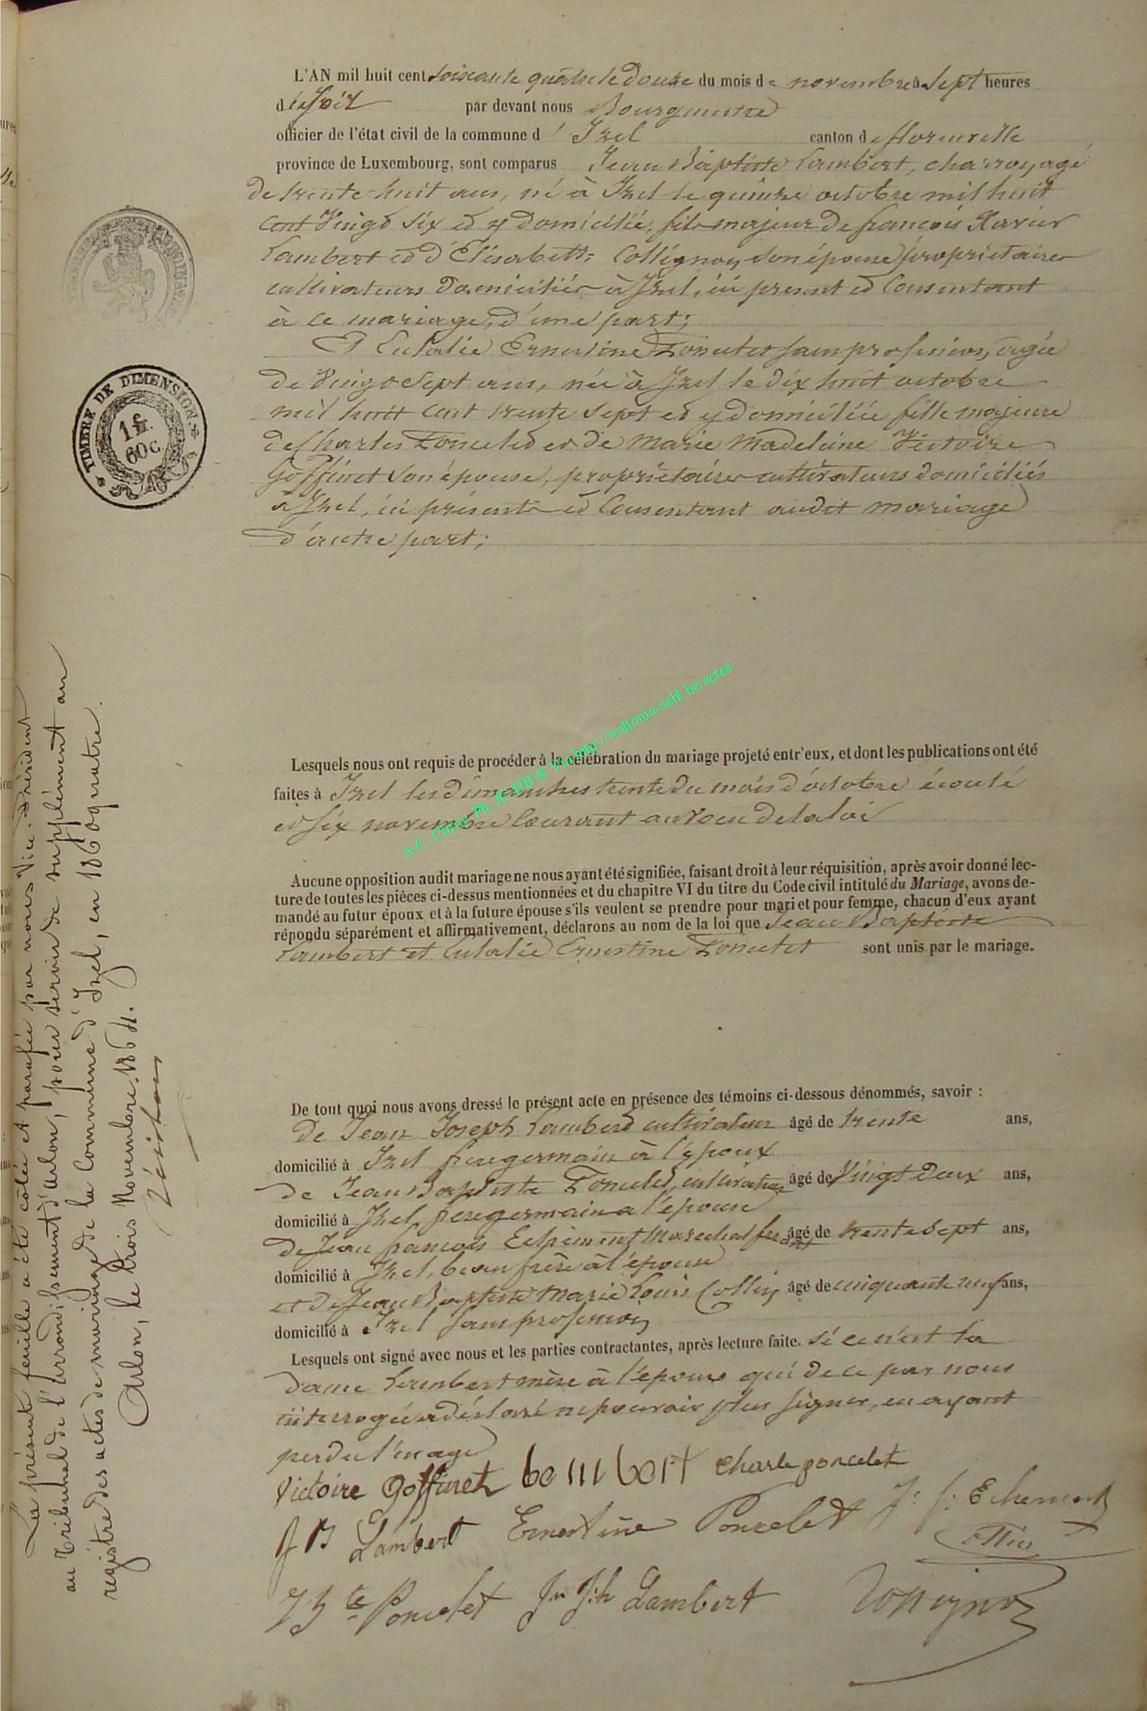 L'AN mil huit cent soixante quatre le douze du mois de novembre à sept heures
du soir par devant nous Bourgmestre
officier de l'état civil de la commune d' Izel canton de florenville
province de Luxembourg, sont comparus Jean Baptiste Lambert, charron, agé
de trente huit ans, né à Izel le quinze octobre mil huit
cent vingt six et y domicilié, fils majeur de françois Xavier
Lambert et d'Elisabeth Collignon son épouse, propriétaires
cultivateurs domiciliés à Izel, ici present et Consentant
à ce mariage, d'une part;
Et Eulalie Ernestine Poncelet sans profession, agée
de vingt sept ans, née à Izel le dix huit octobre
mil huit cent trente sept et y domiciliée fille majeure
de Charles Poncelet et de Marie Madeleine Victoire
Goffinet son épouse, propriétaires cultivateurs domiciliés
à Izel, ici présents et Consentant audit mariage
d'autre part;
TIMBRE DE DIMENSION
1 fr.
60 c
Lesquels nous ont requis de procéder à la célébration du mariage projeté entr'eux, et dont les publications ont été
faites à Izel les dimanches trente du mois d'octobre écoulé
et six novembre Courant au vœu de la loi
Aucune opposition audit mariage ne nous ayant été signifiée, faisant droit à leur réquisition, après avoir donné lec-
ture de toutes les pièces ci-dessus mentionnées et du chapitre VI du titre du Code civil intitulé du Mariage, avons de-
mandé au futur époux et à la future épouse s'ils veulent se prendre pour mari et pour femme, chacun d'eux ayant
répondu séparément et affirmativement, déclarons au nom de la loi que Jean Baptiste
Lambert et Eulalie Ernestine Poncelet sont unis par le mariage.
De tout quoi nous avons dressé le présent acte en présence des témoins ci-dessous dénommés, savoir :
De Jean Joseph Lambert cultivateur âgé de trente ans,
domicilié à Izel frère germain à l'époux
de Jean Baptiste Poncelet, cultivateur âgé de vingt deux ans,
domicilié à Izel, frère germain à l'épouse
de Jean françois Echement Marechal ferrant âgé de trente sept ans,
domicilié à Izel, beau frère à l'épouse
et de Jean Baptiste Marie Louis Collin âgé de cinquante neuf ans,
domicilié à Izel sans profession
Lesquels ont signé avec nous et les parties contractantes, après lecture faite. si ce n'est la
dame Lambert mère à l'époux qui de ce par nous
interrogée a déclaré ne pouvoir plus signer, en ayant
perdu l'usage
Victoire Goffinet Charle poncelet
J B Lambert Ernestine Poncelet J. f. Echement
Collin
J Bte Poncelet Jn Jph Lambert Rossignon
La présente feuille a été cotée et parafée par nous Vice-Président
au Tribunal de l'arrondissement d'Arlon, pour servir de supplément au
registre des actes de mariage de la Commune d'Izel, en 1860 quatre.
Arlon, le trois Novembre 1864.
A.C. Chiny Ph. JC HB © via http://wallonia-asbl.be/actes